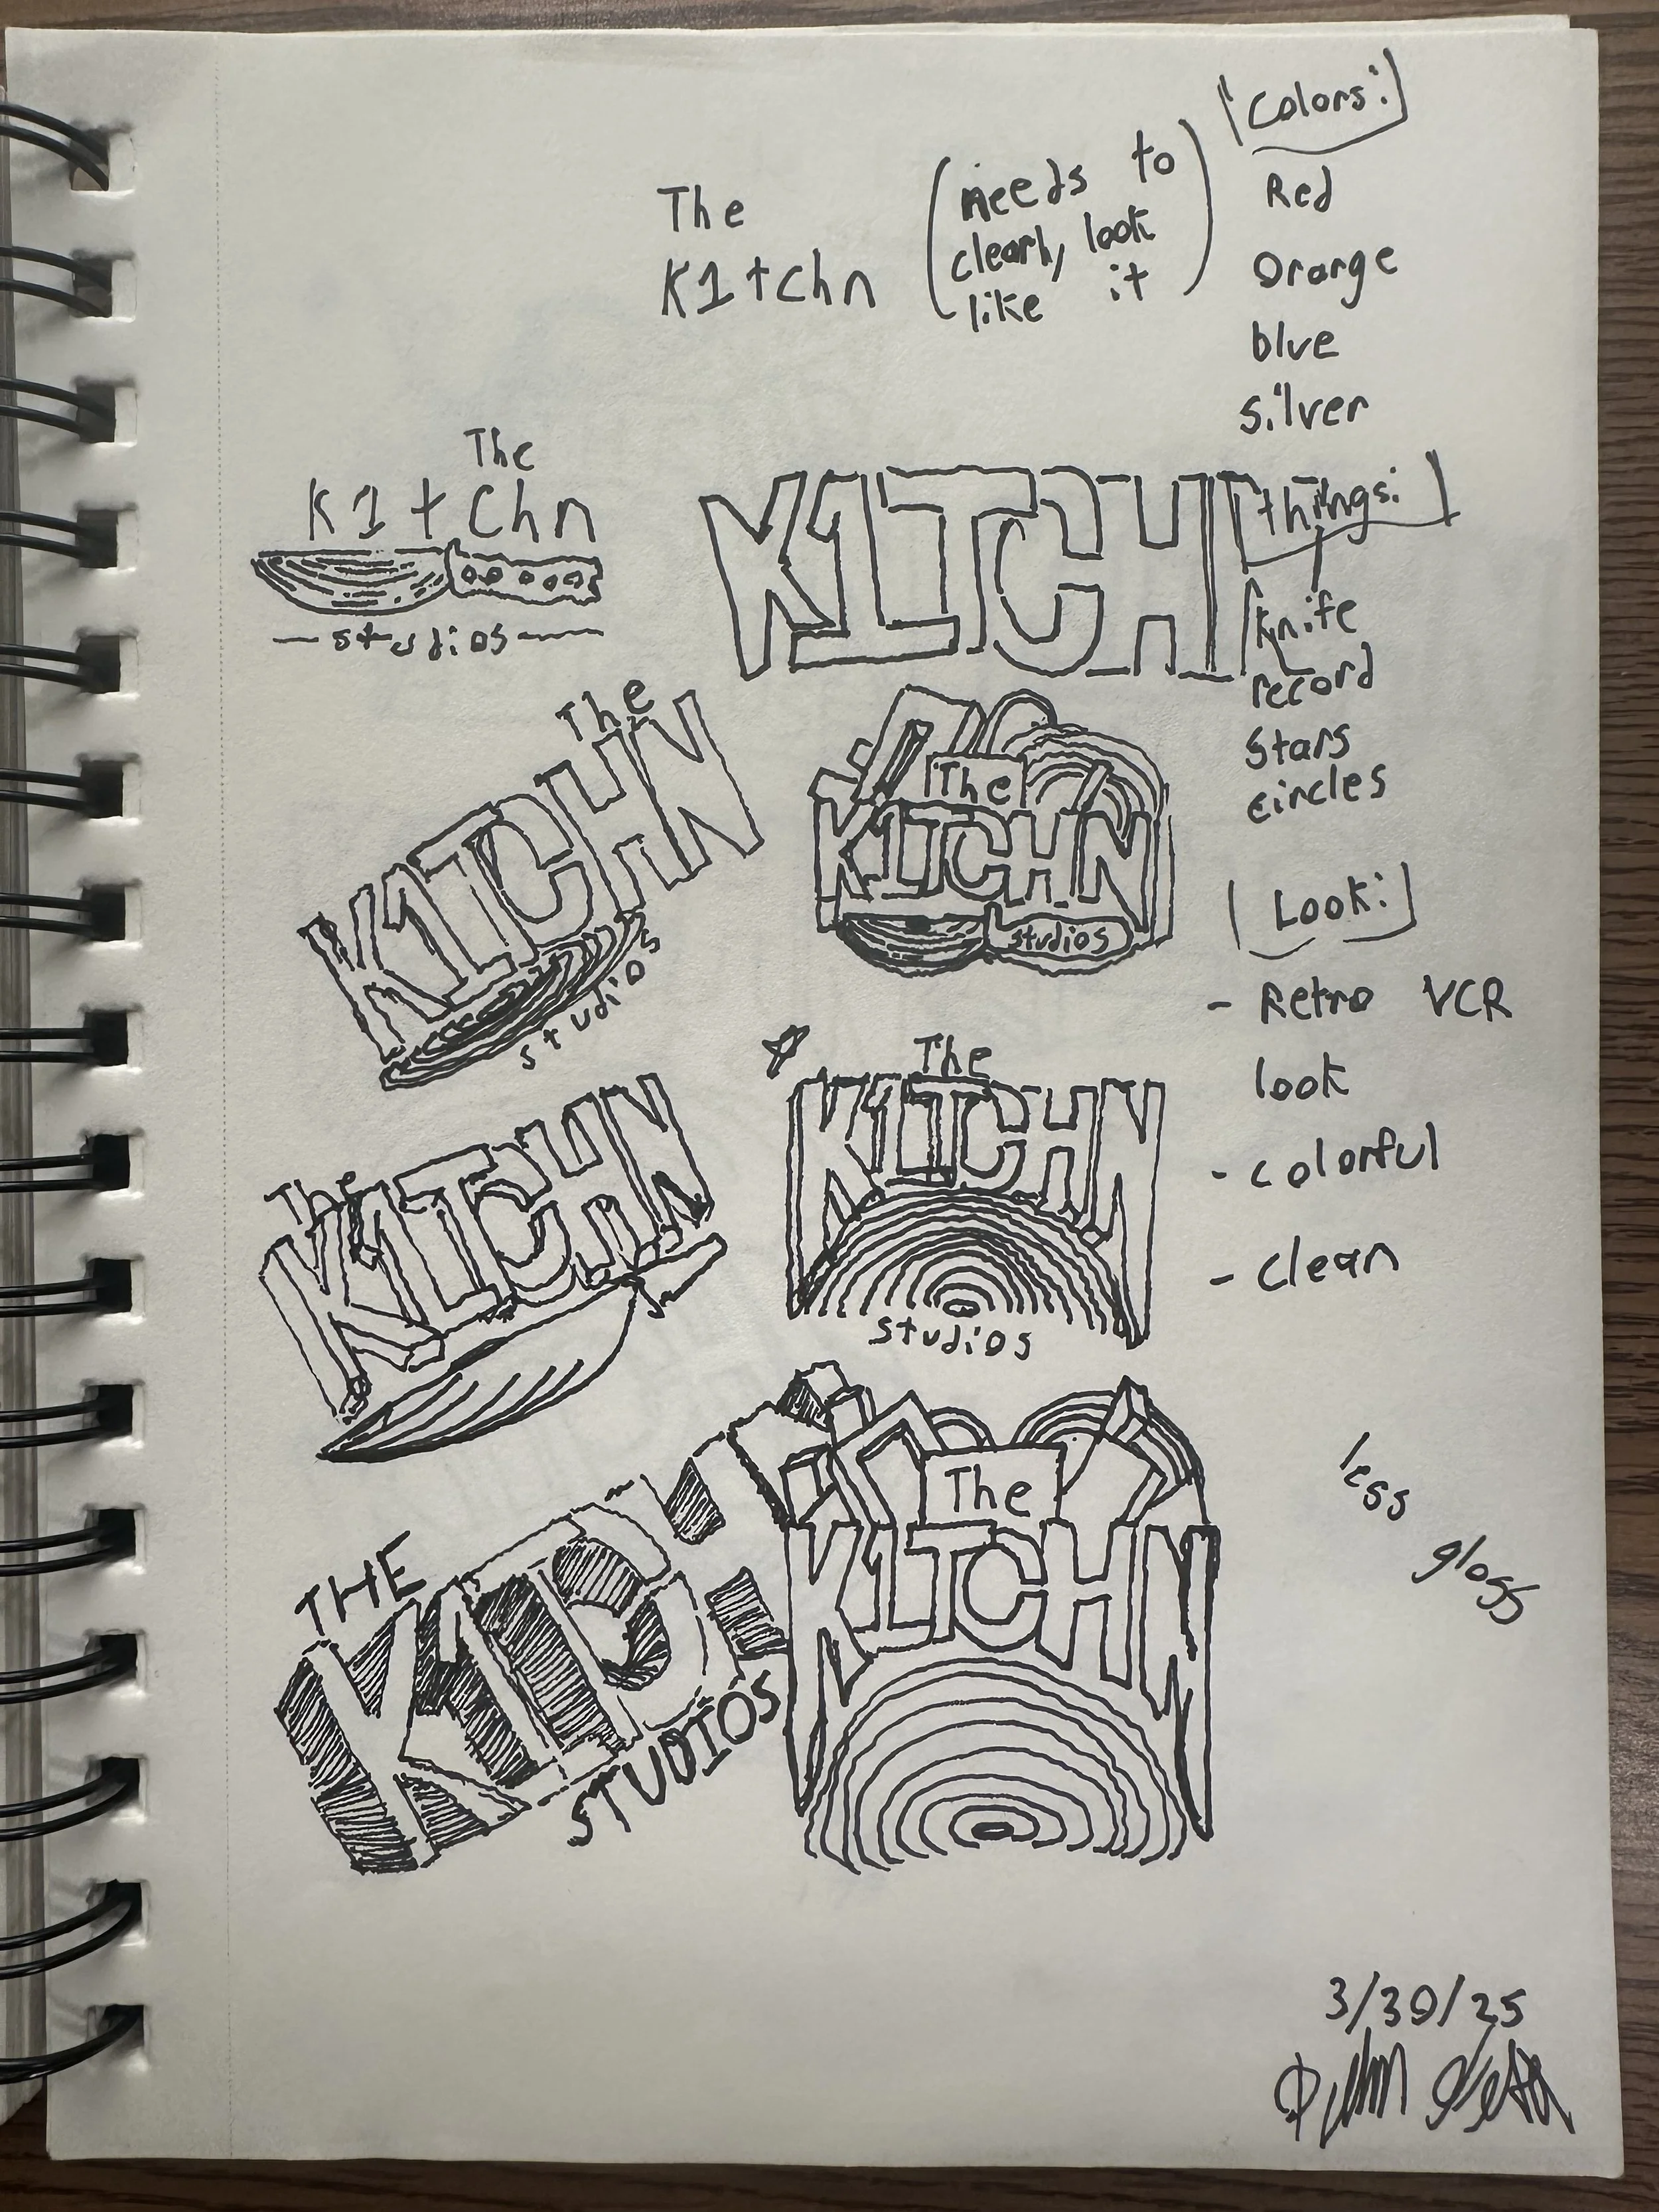 The
K1tchn
(needs to
clearly look
like it)
[Colors:]
Red
Orange
blue
silver
[things:]
knife
record
stars
circles
[Look:]
- Retro VCR
look
- colorful
- clean
less
gloss
The
K1tchn
— studios —
K1TCH
The
K1TCHN
studios
The
K1TCHN
studios
The
K1TCHN
The
K1TCHN
studios
THE
STUDIOS
The
K1TCHN
3/30/25